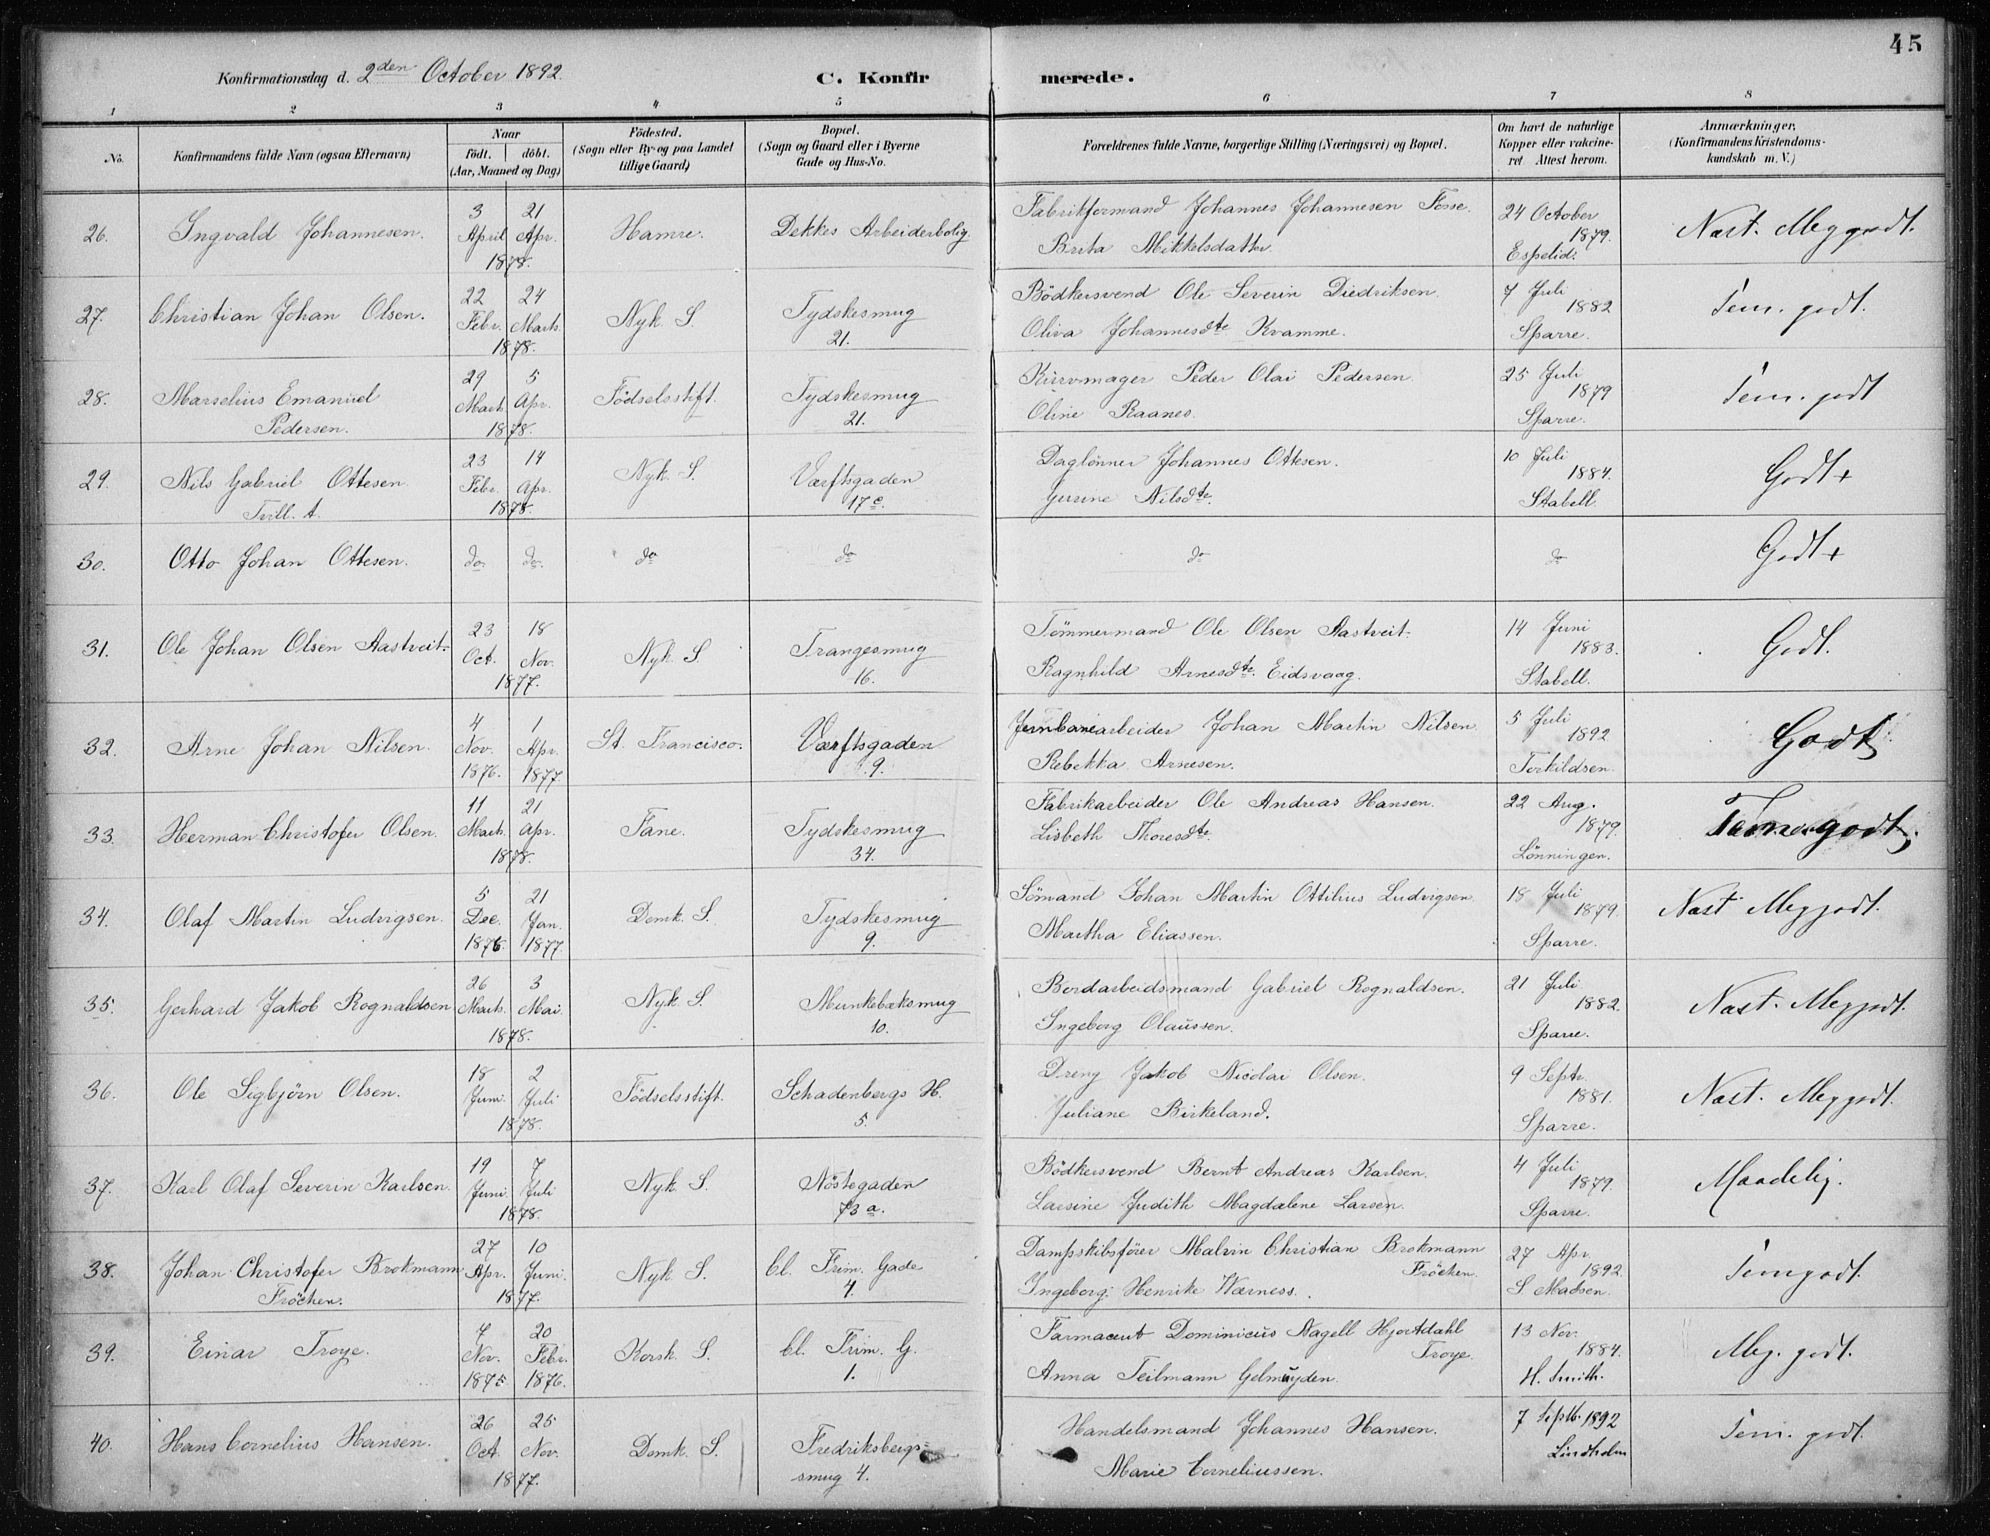 45
Konfirmationsdag d. 2den October 1892.
C. Konfirmerede.
1 2 3 4 5 6 7 8
No.
Konfirmandens fulde Navn (ogsaa Efternavn)
Naar
födt. döbt.
(Aar, Maaned og Dag)
Födested.
(Sogn eller By- og paa Landet
tillige Gaard)
Bopæl.
(Sogn og Gaard eller i Byerne
Gade og Hus-No.
Forældrenes fulde Navne, borgerlige Stilling (Næringsvei) og Bopæl.
Om havt de naturlige
Kopper eller vakcine-
ret. Attest herom.
Anmærkninger.
(Konfirmandens Kristendoms-
kundskab m. V.)
26. Ingvald Johannesen. 3 April 21 Apr. 1878. Hamre. Dekkes Arbeiderbolig
Fabrikformand Johannes Johannesen Fosse.
Brita Mikkelsdatter.
24 October 1879. Espelid.
Næst. Meg godt.
27. Christian Johan Olsen. 22 Febr. 24 Marts. 1878. Nyk. S. Tydskesmug 21.
Bödkersvend Ole Severin Diedriksen.
Oliva Johannesdtr Kvamme.
7 Juli 1882 Sparre.
Tem. godt.
28. Marselius Emanuel
Pedersen.
29 Marts. 5 Apr. 1878. Födselsstift. Tydskesmug 21.
Kurvmager Peder Olai Pedersen.
Oline Raanes.
25 Juli 1879 Sparre.
Tem. godt
29. Nils Gabriel Ottesen.
Tvill. A.
23 Febr. 14 Apr. 1878. Nyk. S. Værftsgaden 17c.
Daglönner Johannes Ottesen.
Gurine Nilsdtr.
10 Juli 1884. Stabell.
Godt+
30. Otto Johan Ottesen. do. do. do do do do
Godt+
31. Ole Johan Olsen Aastveit. 23 Oct. 18 Nov. 1877. Nyk. S Trangesmug 16.
Tömmermand Ole Olsen Aastveit.
Ragnhild Arnesdtr. Eidsvaag.
14 Juni 1883. Stabell.
Godt.
32. Arne Johan Nilsen. 4 Nov. 1876. 1 Apr. 1877. St. Francisco. Værftsgaden 9.
Jernbanearbeider Johan Martin Nilsen
Rebekka Arnesen.
5 Juli 1892 Terkildsen.
Godt
33. Herman Christofer Olsen. 11 Marts. 21 Apr. 1878. Fane. Tydskesmug 34.
Fabrikarbeider Ole Andreas Hansen.
Lisbeth Thoresdtr
22 Aug. 1879. Lönningen.
Tem. godt.
34. Olaf Martin Ludvigsen. 5 Dec. 1876. 21 Jan. 1877. Domk. S. Tydskesmug 9.
Sömand Johan Martin Ottilius Ludvigsen
Martha Eliassen.
18 Juli 1879. Sparre.
Næst Meg godt.
35. Gerhard Jakob Rognaldsen 26 Marts. 3 Mai. 1878. Nyk. S. Munkebæksmug 10.
Bordarbeidsmand Gabriel Rognaldsen.
Ingeborg Olaussen.
21 Juli 1882. Sparre.
Næst. Meg godt.
36. Ole Sigbjörn Olsen. 18 Juni. 2 Juli 1878. Födselsstift. Schadenbergs H. 5.
Dreng Jakob Nicolai Olsen.
Juliane Birkeland.
9 Septr. 1881. Sparre.
Næst. Meg godt.
37. Karl Olaf Severin Karlsen. 19 Juni. 7 Juli 1878. Nyk. S. Nöstegaden 73 a.
Bödkersvend Bernt Andreas Karlsen.
Larsine Judith Magdalene Larsen.
4 Juli 1879. Sparre.
Maadelig.
38. Johan Christofer Brokmann
Fröchen.
27 Apr. 10 Juni. 1877. Nyk S. Cl. Frim. Gade 4.
Dampskibsförer Malvin Christian Brokmann
Fröchen.
Ingeborg Henrike Wærness.
27 Apr. 1892. S Madsen.
Tem godt.
39. Einar Troye. 7 Nov. 1875 20 Febr. 1876. Korsk. S. Cl. Frim. G. 1.
Farmaceut Dominicus Nagell Hjortdahl
Troye
Anna Teilmann Gelmuyden.
13 Nov. 1884. H. Smith.
Meg. godt.
40. Hans Cornelius Hansen. 26 Oct. 25 Nov. 1877. Domk. S. Fredriksbergs-
smug 4.
Handelsmand Johannes Hansen.
Marie Corneliussen.
7 Septb. 1892 Lindholm
Tem. godt.